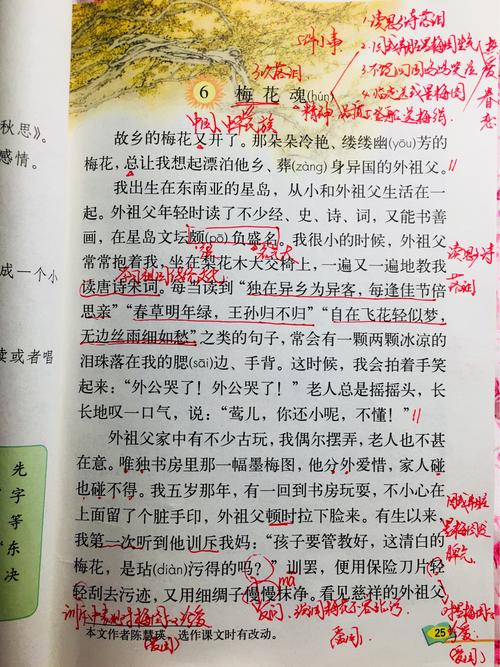 6 梅花魂(hún)
故乡的梅花又开了。那朵朵冷艳、缕缕幽(yōu)芳的
梅花，总让我想起漂泊他乡、葬(zàng)身异国的外祖父。
我出生在东南亚的星岛，从小和外祖父生活在一
起。外祖父年轻时读了不少经、史、诗、词，又能书善
画，在星岛文坛颇(pō)负盛名。我很小的时候，外祖父
常常抱着我，坐在梨花木大交椅上，一遍又一遍地教我
读唐诗宋词。每当读到“独在异乡为异客，每逢佳节倍
思亲”“春草明年绿，王孙归不归”“自在飞花轻似梦，
无边丝雨细如愁”之类的句子，常会有一颗两颗冰凉的
泪珠落在我的腮(sāi)边、手背。这时候，我会拍着手笑
起来：“外公哭了！外公哭了！”老人总是摇摇头，长
长地叹一口气，说：“莺儿，你还小呢，不懂！”
外祖父家中有不少古玩，我偶尔摆弄，老人也不甚
在意。唯独书房里那一幅墨梅图，他分外爱惜，家人碰
也碰不得。我五岁那年，有一回到书房玩耍，不小心在
上面留了个脏手印，外祖父顿时拉下脸来。有生以来，
我第一次听到他训斥我妈：“孩子要管教好，这清白的
梅花，是玷(diàn)污得的吗？”训罢，便用保险刀片轻
轻刮去污迹，又用细绸子慢慢抹净。看见慈祥的外祖父
本文作者陈慧瑛，选作课文时有改动。
25
秋思》。
感情。
成一个小
读或者唱
先
字
等
“东
决
3次落泪
中国 中华民族
精神
读思乡诗
mā
反问
（爱国）